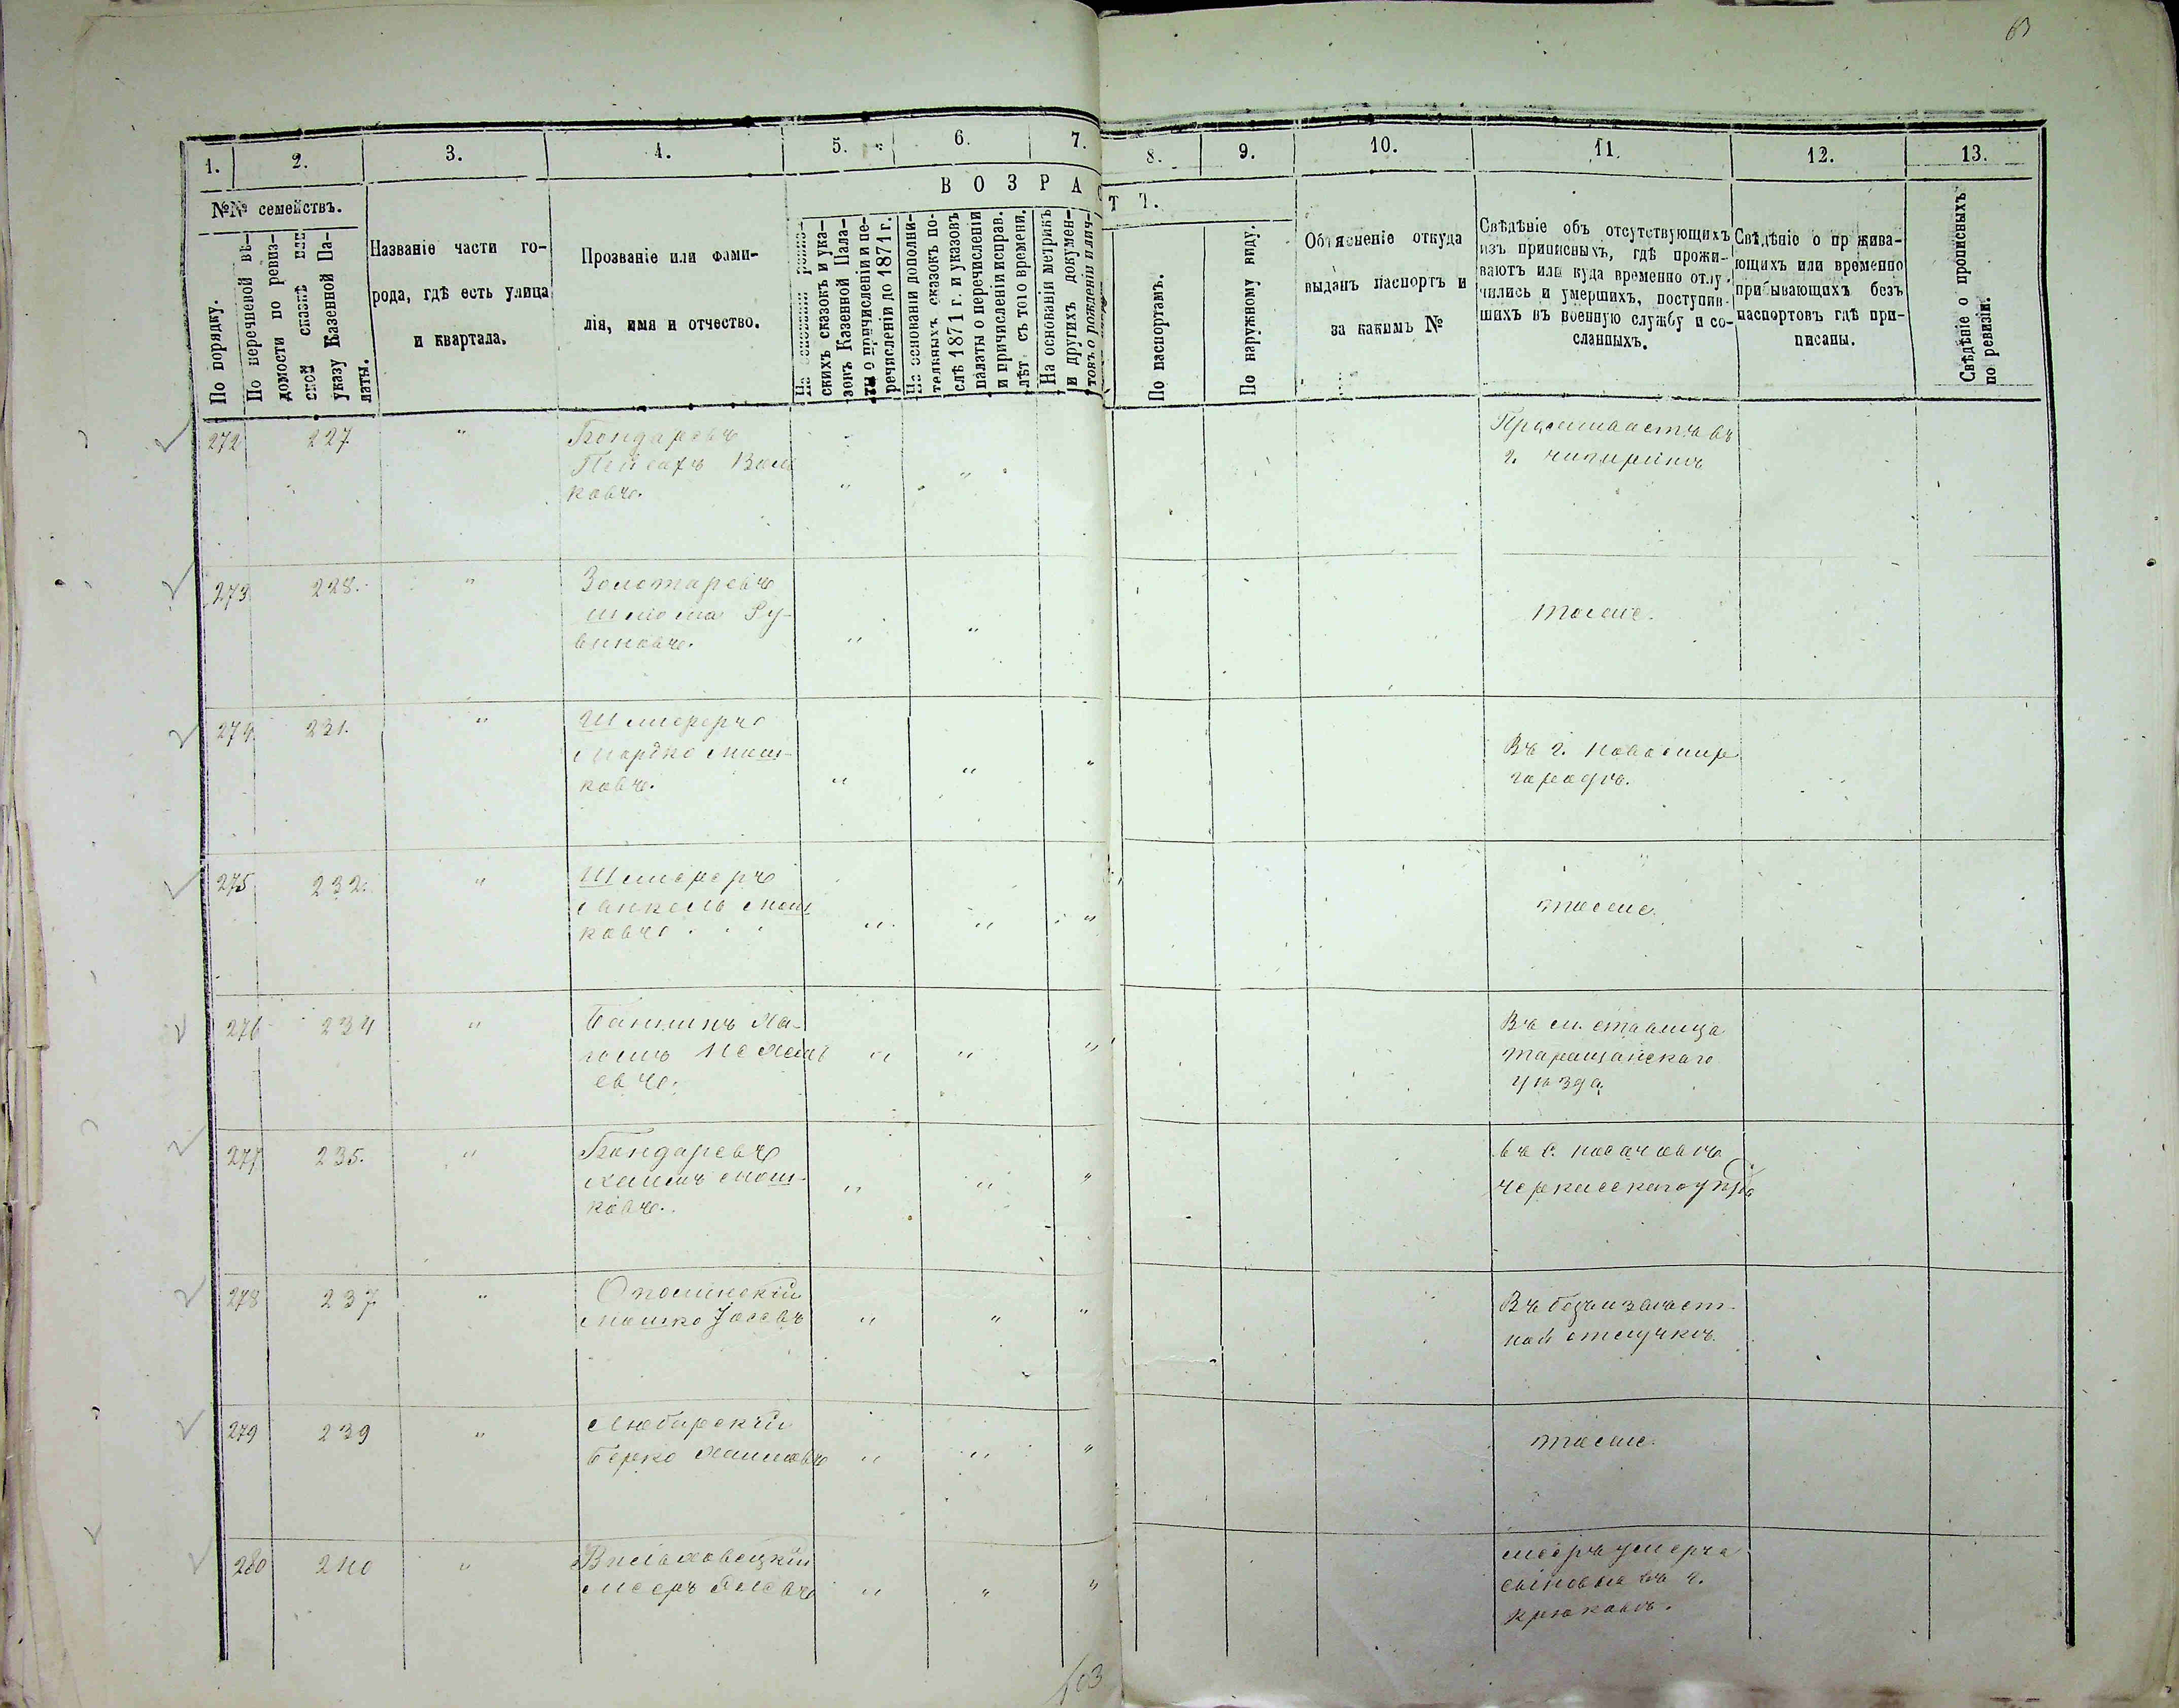 63
1. 2. 3. 4. 5. 6. 7. 8. 9. 10. 11. 12. 13.
№№ семействъ.
По порядку.
По перечневой вѣ-
домости по ревиз-
ской сказкѣ или
указу Казенной Па-
латы.
Названіе части го-
рода, гдѣ есть улица
и квартала.
Прозваніе или фами-
лія, имя и отчество.
ВОЗРАСТЪ.
На основаніи ревиз-
скихъ сказокъ и ука-
зовъ Казенной Пала-
ты о причисленіи и пе-
речисленіи до 1871 г.
На основаніи дополни-
тельныхъ сказокъ по-
слѣ 1871 г. и указовъ
палаты о перечисленіи
и причисленіи исправ.
лѣт съ того времени.
На основаніи метрикъ
и другихъ докумен-
товъ о рожденіи
По паспортамъ.
По наружному виду.
Объясненіе откуда
выданъ паспортъ и
за какимъ №
Свѣдѣніе объ отсутствующихъ
изъ приписныхъ, гдѣ прожи-
ваютъ или куда временно отлу-
чились и умершихъ, поступив-
шихъ въ военную службу и со-
сланныхъ.
Свѣдѣніе о прожива-
ющихъ или временно
прибывающихъ безъ
паспортовъ гдѣ при-
писаны.
Свѣдѣніе о прописныхъ
по ревизіи.
272 227 " Бондаревъ
Пейсахъ Воль
ковъ. " "
Проживаетъ въ
г. Чигиринѣ
273 228. " Золотаревъ
Шлиома Ру-
виновъ. " "
тоже.
274 231. " Шмереръ
Мордко Мош-
ковъ. " " "
Въ г. Новомир
городѣ.
275 232. " Шмереръ
Янкель Мош
ковъ " " "
тоже.
276 234 "
евъ. " " "
Въ м. ставища
таращанскаго
уѣзда.
277 235. " Бондаревъ
Хаимъ Мош-
ковъ. " " "
въ с. носачовѣ
черкасскаго уѣзда
278 237 "
Мошко Іосевъ " " "
Въ безъизвѣст-
ной отлучкѣ.
279 239 " Любарскій
Берко Хаимовъ " " "
тоже.
280 240 "
Мееръ " " "
Мееръ умеръ а
сыновья въ г.
Крюковѣ.
103